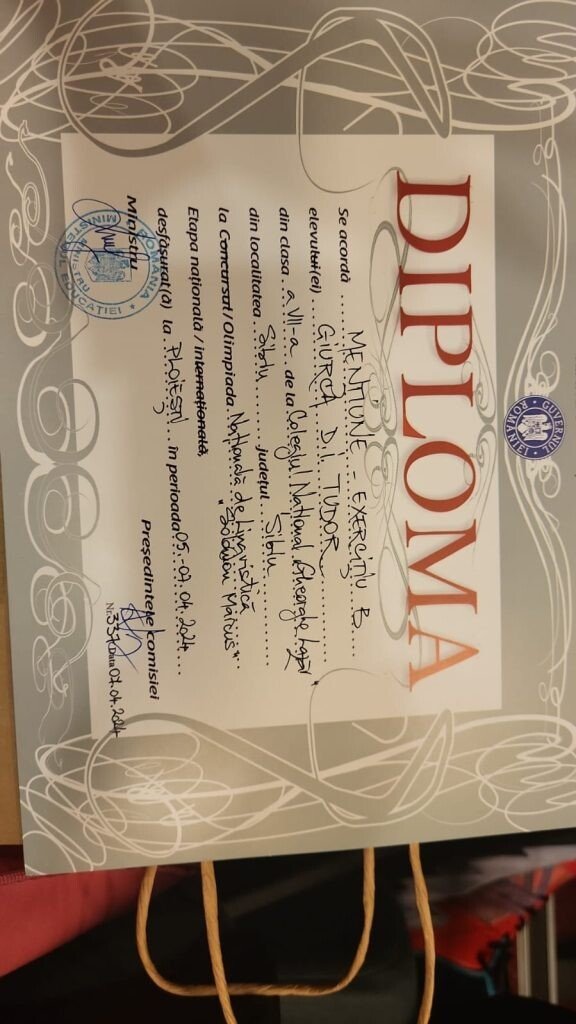 GUVERNUL ROMÂNIEI
DIPLOMA
Se acordă ... MENȚIUNE - EXERCIȚIU B ...
elevului(ei) ... GIURCĂ D.I. TUDOR ...
din clasa ... a VII-a de la Colegiul Național "Gheorghe Lazăr"
din localitatea ... Sibiu ... județul ... Sibiu
la Concursul/Olimpiada Națională de Lingvistică
"Solomon Marcus"
Etapa națională / internațională,
desfășurat(ă) la PLOIEȘTI ... în perioada 05.-07.04.2024
Ministru
Președintele comisiei
ROMÂNIA
MINISTERUL EDUCAȚIEI
MINISTRU
Nr. 337 Data 07.04.2024